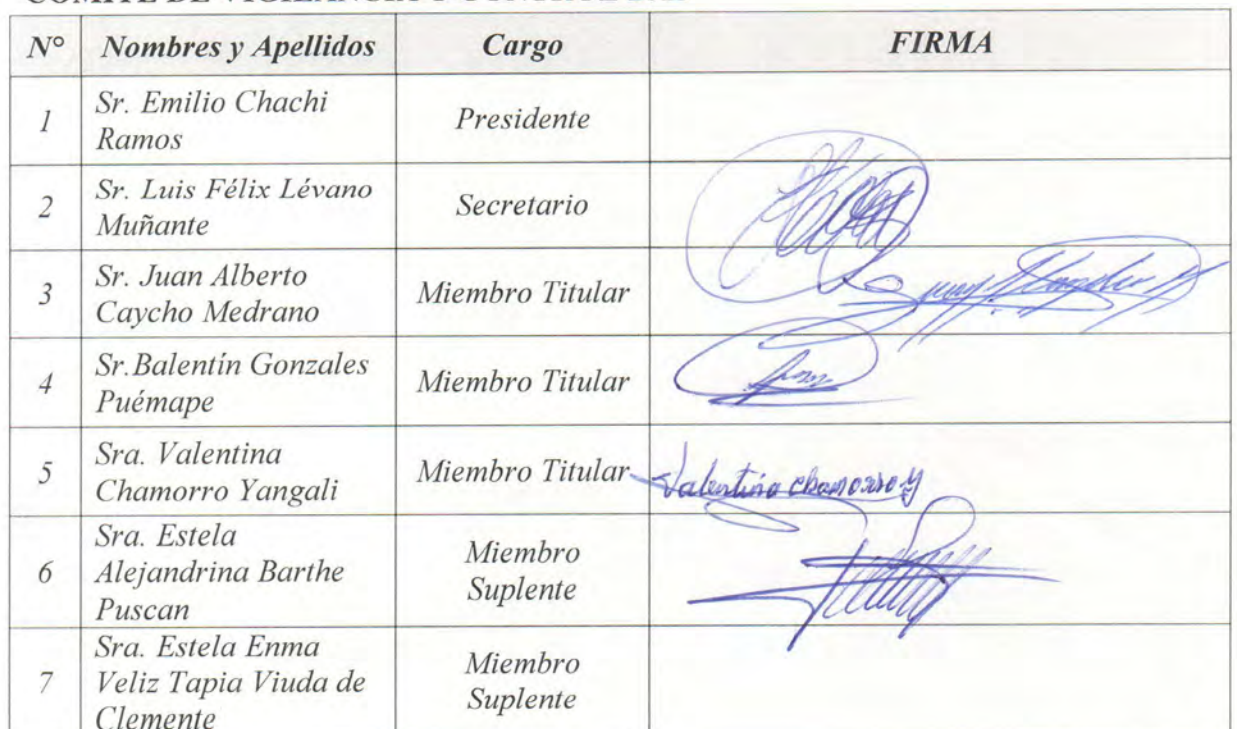 N° Nombres y Apellidos Cargo FIRMA
1 Sr. Emilio Chachi
Ramos Presidente
2 Sr. Luis Félix Lévano
Muñante Secretario
3 Sr. Juan Alberto
Caycho Medrano Miembro Titular
4 Sr.Balentín Gonzales
Puémape Miembro Titular
5 Sra. Valentina
Chamorro Yangali Miembro Titular Valentina chamorro y
6 Sra. Estela
Alejandrina Barthe
Puscan Miembro
Suplente
7 Sra. Estela Enma
Veliz Tapia Viuda de
Clemente Miembro
Suplente